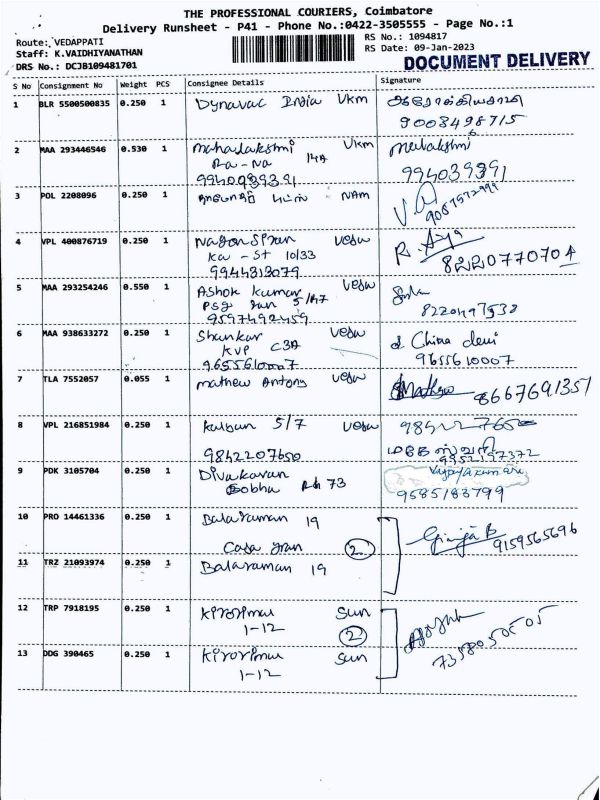 THE PROFESSIONAL COURIERS, Coimbatore
Delivery Runsheet - P41 - Phone No.:0422-3505555 - Page No.:1
Route: VEDAPPATI
Staff: K.VAIDHIYANATHAN
DRS No.: DCJB109481701
RS No.: 1094817
RS Date: 09-Jan-2023
DOCUMENT DELIVERY
S No Consignment No Weight PCS Consignee Details Signature
1 BLR 5500500835 0.250 1 Dynavac India Vkm
9003498715
2 MAA 293446546 0.530 1 Mahalakshmi Vkm
Ra-Na 14A
9940939391
994039391
3 POL 2208096 0.250 1 NAM
4 VPL 400876719 0.250 1 vedu
Ka - St 10/33
9944313079
8220770704
5 MAA 293254246 0.550 1 Ashok Kumar vedu
PSG 5/47
9597492459
6 MAA 938633272 0.250 1 Shankar vedu
KVP C3A
9655610007
9655610007
7 TLA 7552057 0.055 1 Mathew Antony vedu
8667691351
8 VPL 216851984 0.250 1 5/7 vedu
9842207650
9 PDK 3105704 0.250 1 Divakaran
Sobha 73
Vijayakumari
9585183799
10 PRO 14461336 0.250 1 Balaraman 19
Casa Gran 2
Girija B 9159565696
11 TRZ 21093974 0.250 1 Balaraman 19
12 TRP 7918195 0.250 1 Kirorimal Sun
1-12 2
7358050505
13 DDG 390465 0.250 1 Kirorimal Sun
1-12